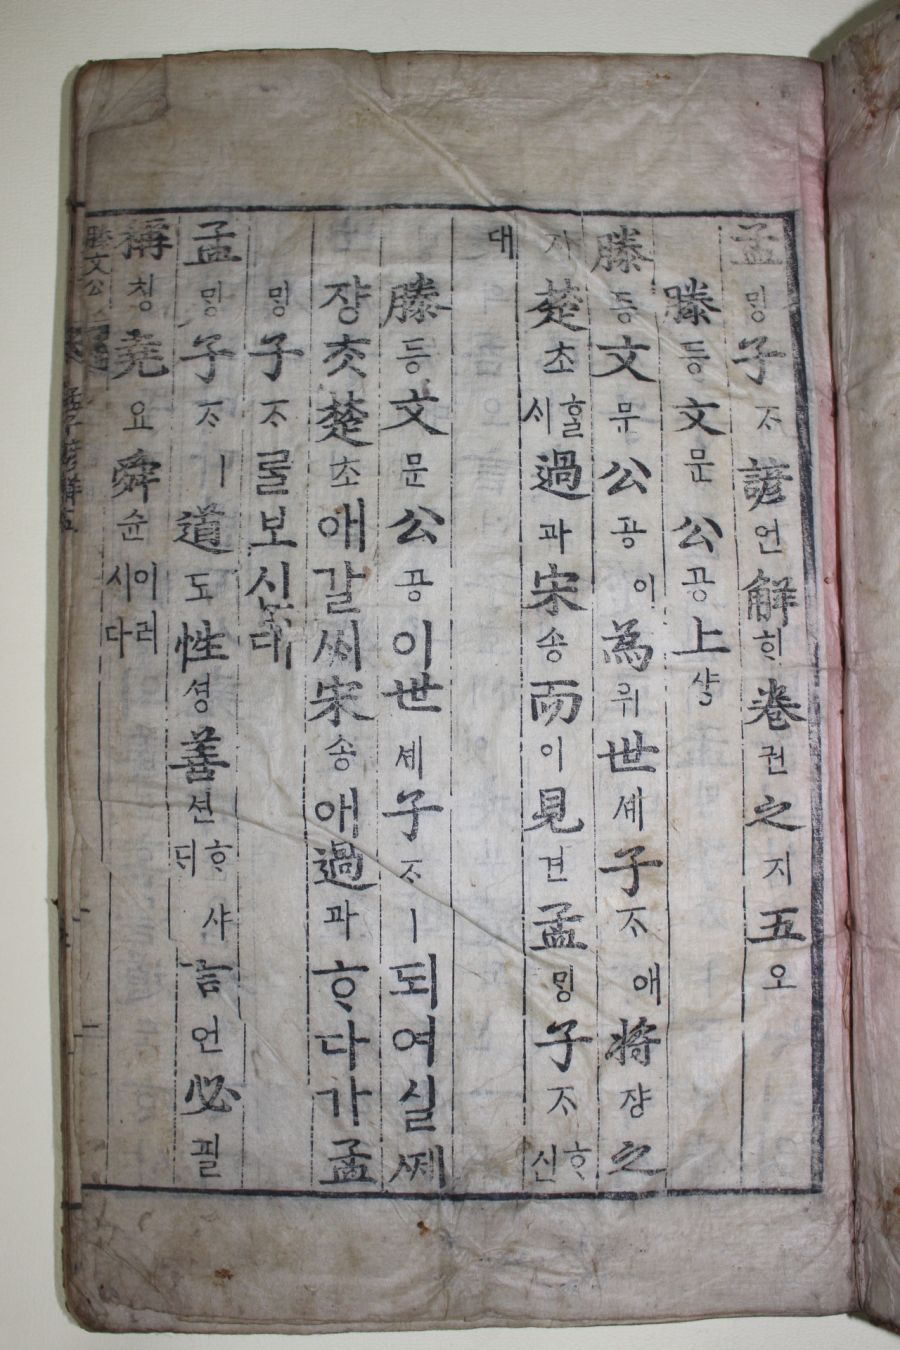 孟ᄆᆡᆼ子ᄌᆞ諺언解ᄒᆡ卷권之지五오
滕등文문公공上샹
滕등文문公공이為위世셰子ᄌᆞ애將쟝之
지楚초ᄒᆞᆯ시過과宋송而이見견孟ᄆᆡᆼ子ᄌᆞᄒᆞ신
대
滕등文문公공이世셰子ᄌᆞㅣ되여실쩨
쟝ᄎᆞᆺ楚초애갈ᄊᆡ宋송애過과ᄒᆞ다가孟
ᄆᆡᆼ子ᄌᆞᄅᆞᆯ보신대
孟ᄆᆡᆼ子ᄌᆞㅣ道도性셩善션ᄒᆞ샤ᄃᆡ言언必필
稱칭堯요舜슌이러시다
滕文公
孟子諺解五